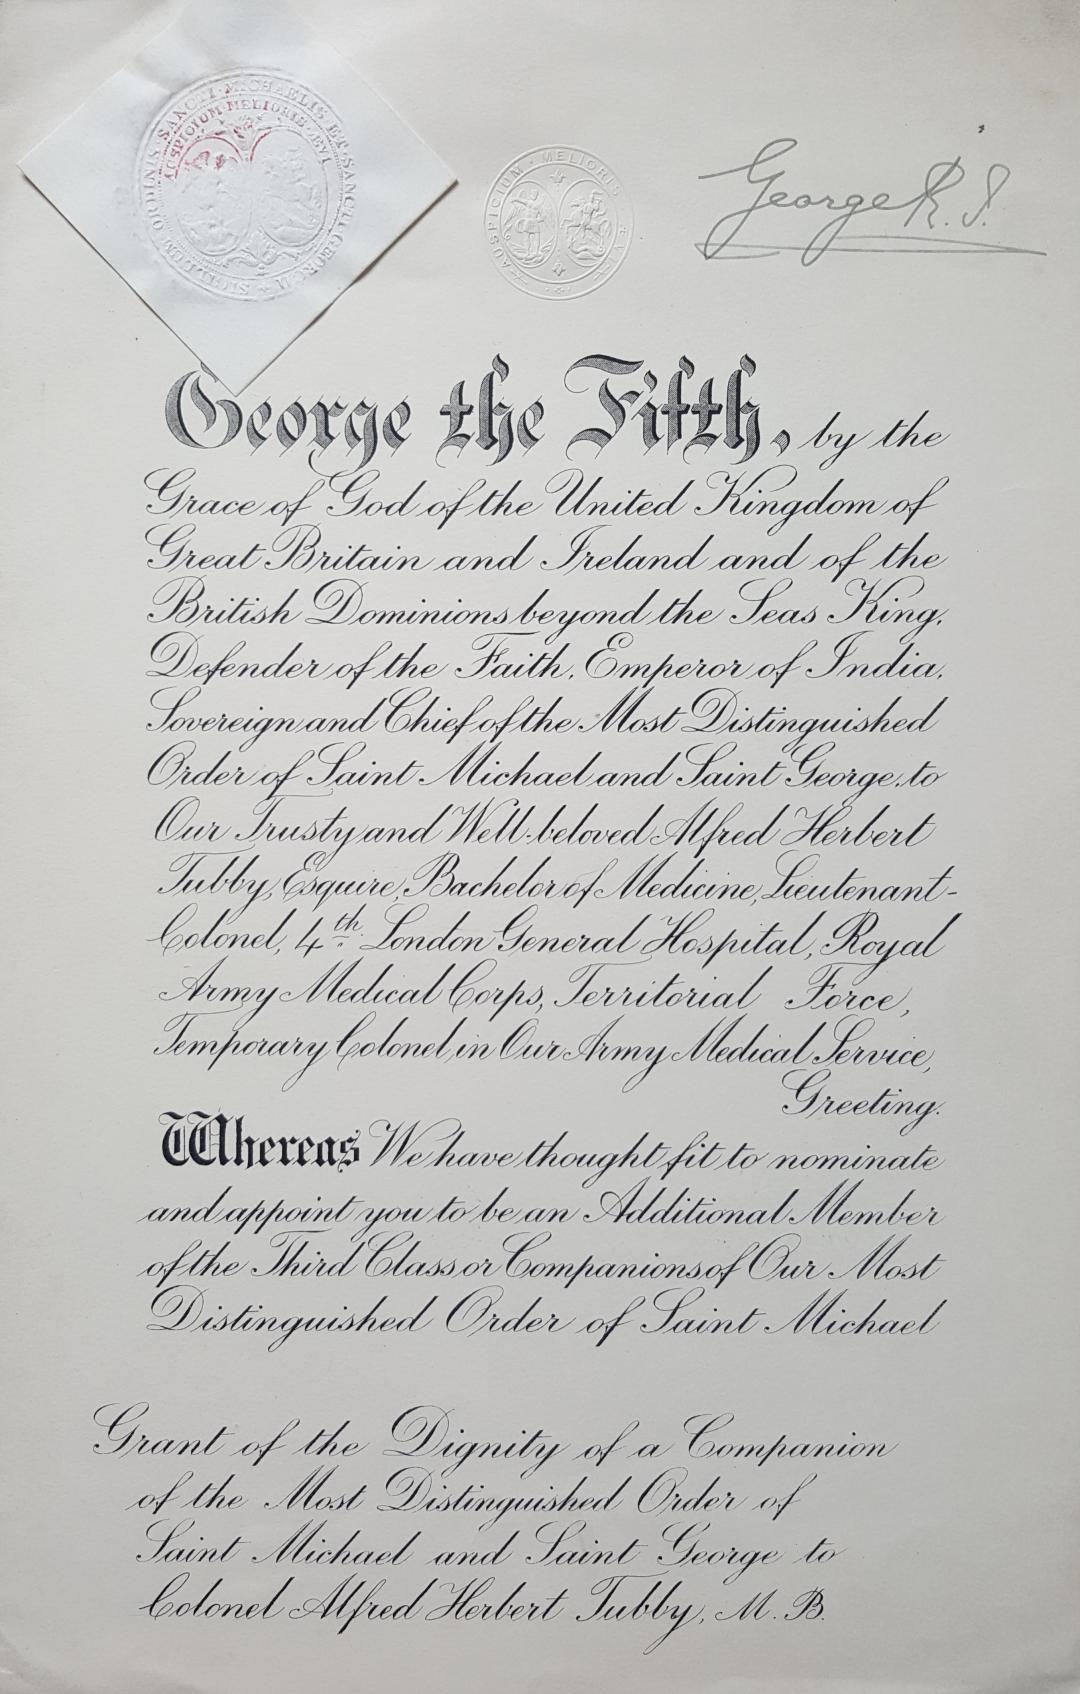 SIGILLUM ORDINIS SANCTI·MICHAELIS ET SANCTI GEORGII
AUSPICIUM·MELIORIS·ÆVI
AUSPICIUM·MELIORIS ÆVI
George R. I.
George the Fifth, by the
Grace of God of the United Kingdom of
Great Britain and Ireland and of the
British Dominions beyond the Seas King,
Defender of the Faith, Emperor of India,
Sovereign and Chief of the Most Distinguished
Order of Saint Michael and Saint George, to
Our Trusty and Well-beloved Alfred Herbert
Tubby, Esquire, Bachelor of Medicine, Lieutenant-
Colonel, 4th London General Hospital, Royal
Army Medical Corps, Territorial Force,
Temporary Colonel in Our Army Medical Service,
Greeting.
Whereas We have thought fit to nominate
and appoint you to be an Additional Member
of the Third Class or Companions of Our Most
Distinguished Order of Saint Michael
Grant of the Dignity of a Companion
of the Most Distinguished Order of
Saint Michael and Saint George to
Colonel Alfred Herbert Tubby, M. B.